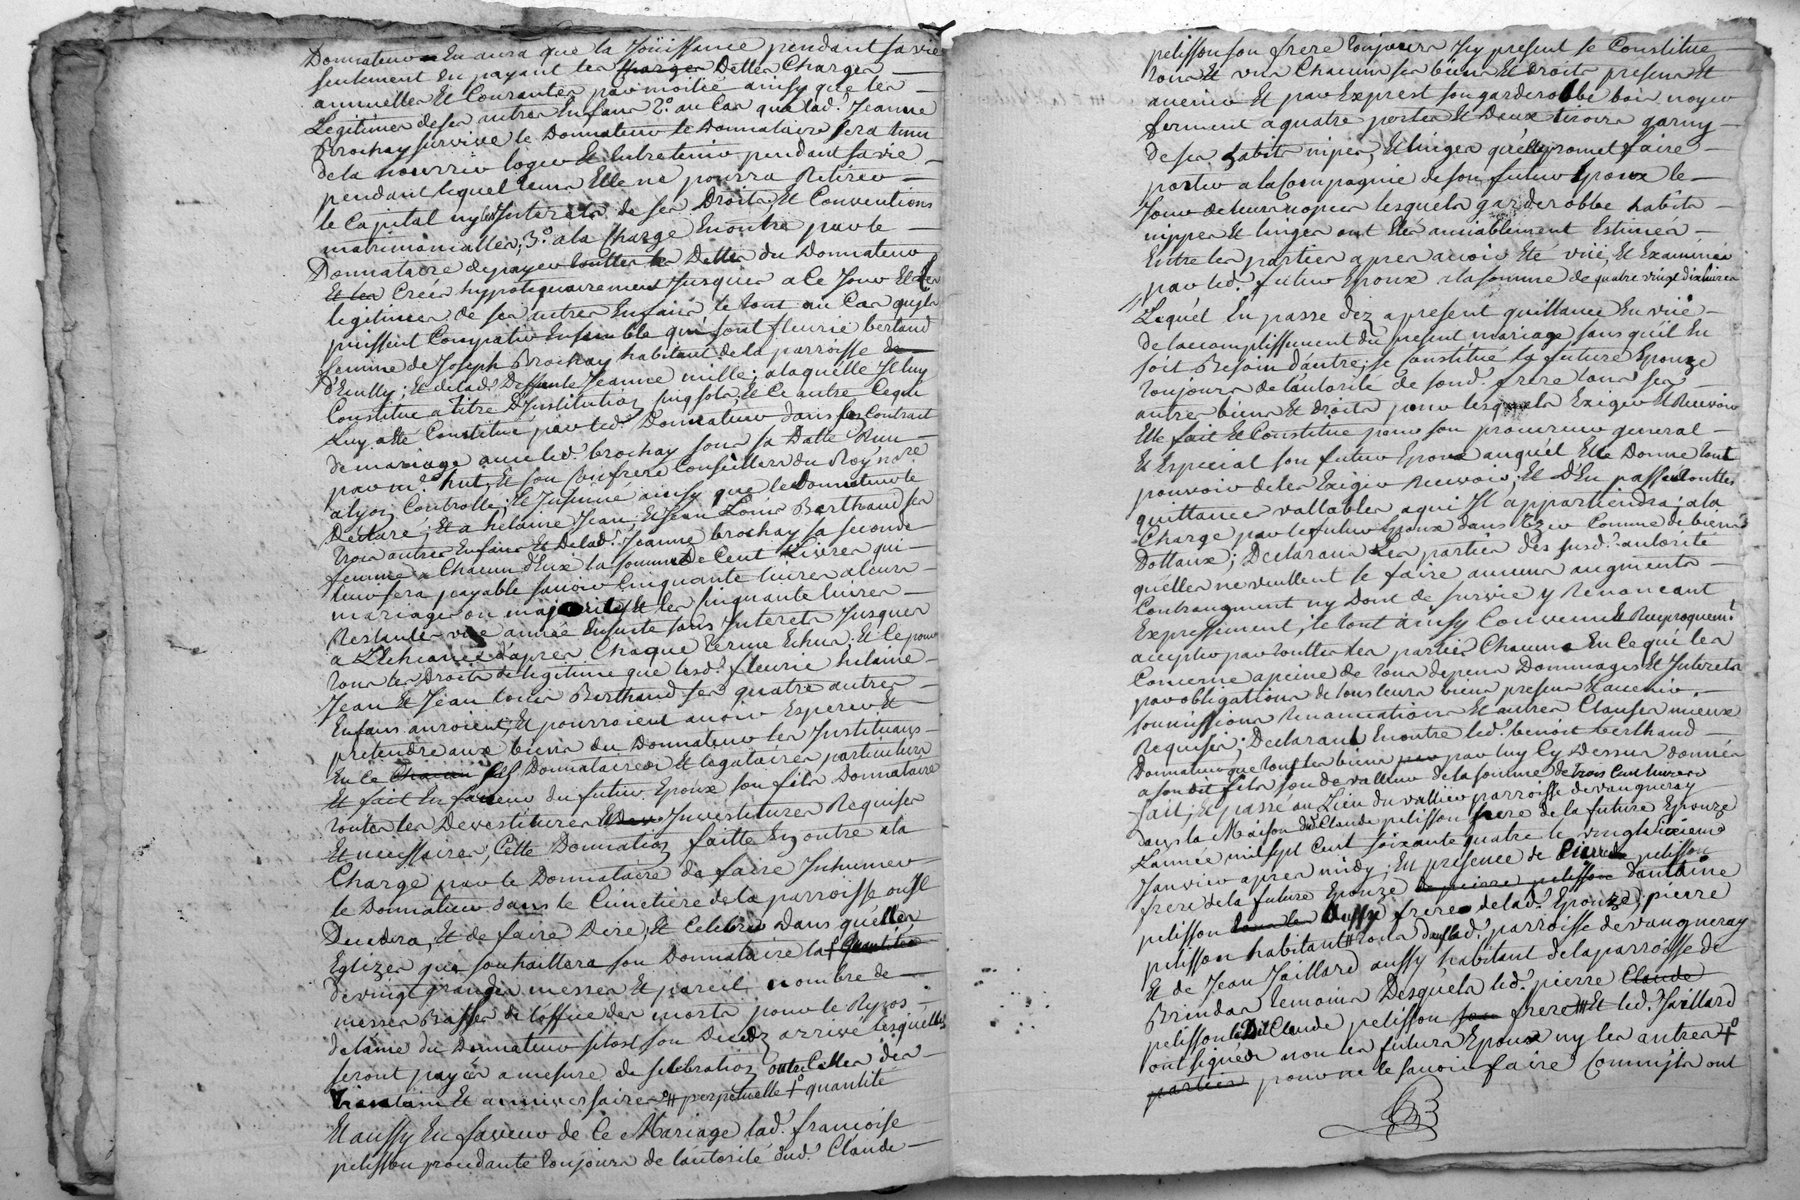 Donnateur En aura que la Joüissance pendant sa vie
seulement En payant les charges Dettes Charges
annuelles Et Courantes par moitié ainsy que les
Legitimes de ses autres Enfans 2° au Cas que lad.e Jeanne
Brochay survive le Donnateur le Donnataire sera tenu
de la nourrir loger Et Entretenir pendant sa vie
pendant lequel tems Elle ne pourra Retirer
le Capital ny les Interets de ses Droits Et Conventions
matrimonialles; 3° a la Charge Enontre par le
Donnataire de payer touttes les Dettes du Donnateur
Et les Créés hypotequairement Jusques a Ce Jour Et les
legitimes de ses autres Enfans, le tout au Cas qu'ils
puissent Compatir Ensemble qui sont fleurie bertaud
femme de Joseph Brochay habitant de la parroisse de
d'Eeully; Et de lad.e Deffunte Jeanne mille; alaquelle Il luy
Constitue a Titre D'Institution Et Ce outre Ce qui
Luy a été Constitué par led. Donnateur dans son Contract
de mariage avec led. brochay sous sa Datte Reçu
par m.e hut, Et son Confrere Conseillers du Roy no.re
a lyon, Controllé, Et Insinué ainsy que le Donnateur le
Déclare; Et a helaine Jean Et Jean Louis Berthaud ses
trois autres Enfans Et De lad.e Jeanne brochay sa seconde
femme a Chacun d'Eux la somme De Cent Livres qui
leur sera payable savoir Cinquante livres a leurs
mariage ou majorité Et les Cinquante livres
Restante une année Ensuite sans Interets Jusques
a L'Echeance d'apres Chaque terme Echus, Et Ce pour
tous les Droits de legitime que lesd. fleurie helaine
Jean Et Jean louis Berthaud ses quatre autres
Enfans auroient, Et pourroient avoir Esperer Et
pretendre aux biens du Donnateur les Instituans
En Ce Chacun Donnataires Et legataires particuliers
Et fait En faveur du futur Epoux son fils Donnataire
toutes les Devestitures Investitures Requises
Et necessaires, Cette Donnation faitte En outre a la
Charge par le Donnataire de faire Inhumer
le Donnateur dans le Cimetiere de la parroisse ou Il
Decedera, Et de faire Dire, Et Celebrer dans quelles
Eglizes que souhaittera son Donnataire la + quantitée
de vingt grandes messes Et pareil nombre de
messes Basses de l'office des morts pour le Repos
de lame du Donnateur sitost son Decedz arrive lesquelles
seront payées a mesure de selebration outre Celles des
Trentain Et anniversaire perpetuelle +° quantité
Et aussy En faveur de Ce Mariage lad.e francoise
pelisson procedante toujours de lautorité dud. Claude
pelisson son frere toujours Icy present se Constitue
tous Et uns Chacuns ses biens Et droits presens Et
avenir Et par Exprest son garderobbe bois noyer
fermant a quatre portes Et Deux tiroirs garny
de ses habits nipes, Et linges qu'elle promet faire
porter a la Compagnie de son futur Epoux le
Jour de leurs nopces lesquels garderobbe habits
nippes Et linges ont Eté amiablement Estimés
Entre les parties apres avoir Eté vüe, Et Examinée
par led. futur Epoux a la somme de quatre vingt dix livres
Lequel En passe dez a present quittance En vüe
de l'accomplissement du present mariage sans qu'il En
soit Besoin dautre; se Constitue la future Epouze
toujours de lautorité de sond. frere tous ses
autres biens Et droits pour lesquels Exiger Et Recevoir
Elle fait Et Constitue pour son procureur general
Et Especial son futur Epoux auquel Elle Donne tout
pouvoir de les Exiger Recevoir, Et D'En passer touttes
quittances vallables a qui Il appartiendra; a la
Charge par le futur Epoux dans Comme de biens
Dottaux; Declarans Les parties des susd. autorité
qu'elles ne veullent se faire aucuns augments
Contraugment ny Dont de survie y Renoncant
Expressement, le tout ainsy Convenu Et Reciproquem.t
accepter par touttes les parties Chacune En Ce qui les
Concerne a peine de tous depens Dommages Et Interets
par obligations de tous leurs biens presens Et avenir.
soumissions Renonciations Et autres Clauses mieux
Requises; Declarant Enoutre led. benoit berthaud
Donnateur que tous les biens par luy Cy Dessus donnés
a son dit fils sont de valleur de la somme de trois Cent livres
fait, Et passé au Lieu du vallier parroisse de vaugneray
dans la Maison de Claude pelisson frere de la future Epouze
L'année mil sept Cent soixante quatre le vingt sixieme
Janvier apres midy; En presence de Pierre pelisson
frere de la future Epouze de pierre pelisson D'antoine
pelisson tous les Aussy freres de lad. Epouze; pierre
pelisson habitants tous dans lad. parroisse de vaugneray
Et de Jean Jaillard aussy habitant de la parroisse de
Brindas temoins Desquels led. pierre Claude
pelisson Ledit Claude pelisson son frere Et led. Jaillard
ont signés non les futurs Epoux ny les autres +°
parties pour ne le savoir faire Commists ont